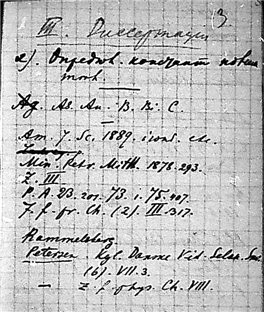 3
III. Диссертации
2). Определ. констант новым
Ag. As. Au. B. Bi. C.
Am. J. Sc. 1889. etc.
Min. Petr. Mitth. 1878. 293.
Z. III
P. A. 73. 75.
J. f. pr. Ch. (2). III. 317.
Rammelsberg.
Petersen. Kgl. Danske Vid. Selsk.
(6). VII. 3.
— Z. f. phys. Ch. VIII.